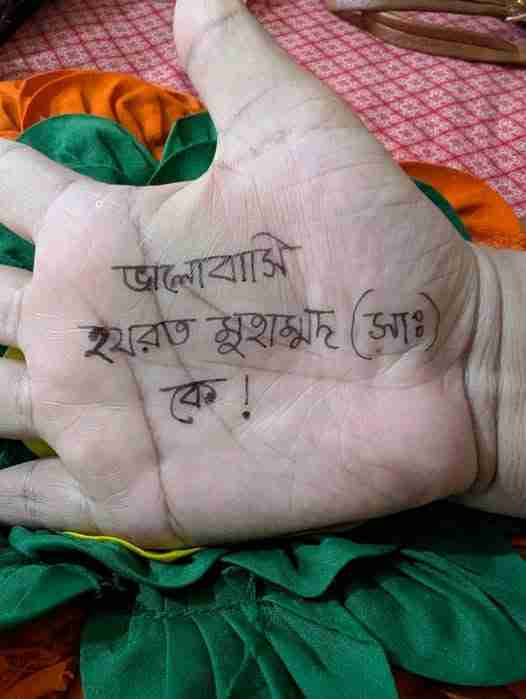 ভালোবাসি
হযরত মুহাম্মদ (সাঃ)
কে !